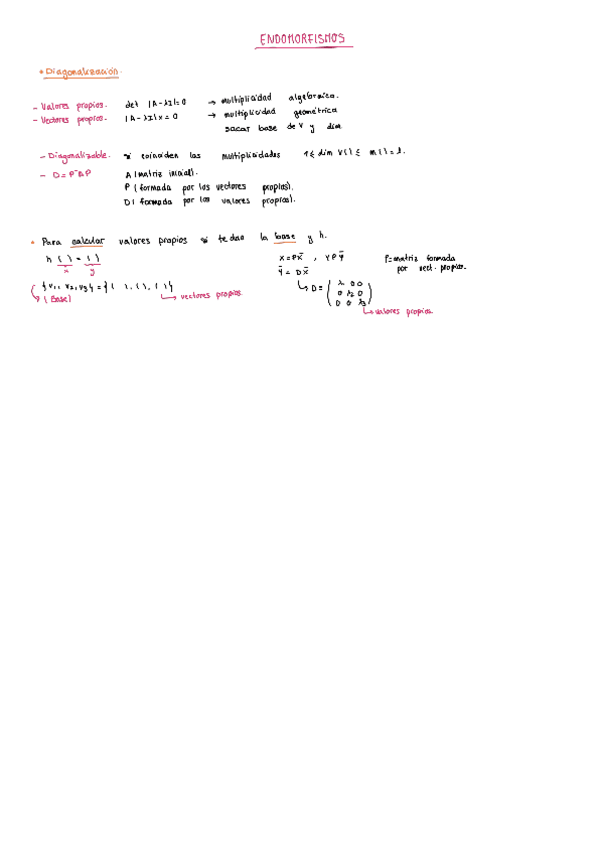 ENDOMORFISMOS
• Diagonalización.
- Valores propios. det |A-λI|=0 → multiplicidad algebraica.
- Vectores propios. |A-λI|x=0 → multiplicidad geométrica
sacar base de V y dim
- Diagonalizable. si coinciden las multiplicidades 1≤ dim V( ) ≤ m( )=1.
- D=P⁻¹AP A (matriz inicial).
P (formada por los vectores propios).
D (formada por los valores propios).
• Para calcular valores propios si te dan la base y h.
h ( ) = ( ) X=PX̄ , Y=PȲ P=matriz formada
x y Ȳ = DX̄ por vect. propios.
{v₁, v₂, v₃} = {( ), ( ), ( )} → vectores propios. → D= (λ₁ 0 0
(Base) 0 λ₂ 0
0 0 λ₃)
→ valores propios.